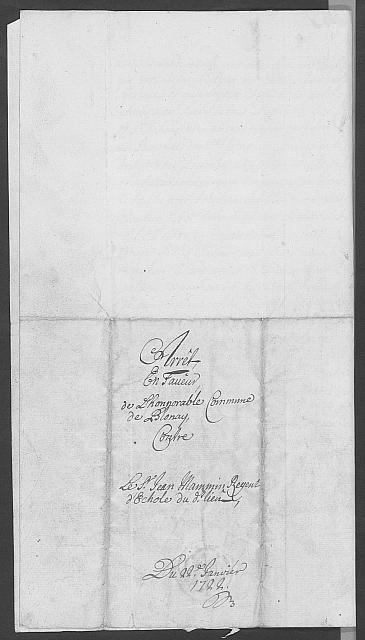 Arrêt,
En Faveur,
de L'honnorable Commune
de Blonay,
Contre
Le Sr. Jean Mammin Regent
d'Echole du d. lieu,
Du 22e. Janvier
1722.